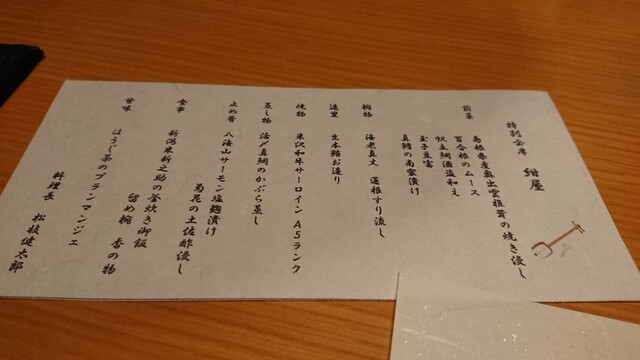 特別会席 紺屋
前菜
島根県産奥出雲椎茸の焼き浸し
百合根のムース
帆立鯛酒盗和え
玉子豆富
真鱈の南蛮漬け
椀物 海老真丈 蓮根すり流し
造里 生本鮪お造り
焼物 米沢和牛サーロイン A5ランク
蒸し物 活〆真鯛のかぶら蒸し
止め肴 八海山サーモン塩麹漬け
菊花の土佐酢浸し
食事 新潟米新之助の釜炊き御飯
留め椀 香の物
甘味 ほうじ茶のブランマンジェ
料理長 松枝健太郎